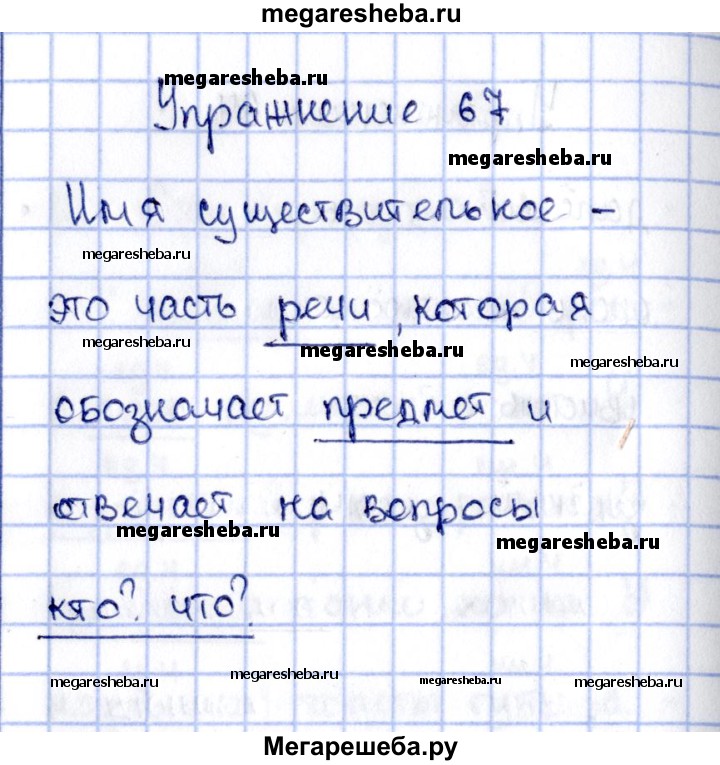 megaresheba.ru
megaresheba.ru
Упражнение 67
megaresheba.ru
Имя существительное –
megaresheba.ru
это часть речи, которая
megaresheba.ru
megaresheba.ru
megaresheba.ru
обозначает предмет и
отвечает на вопросы
megaresheba.ru
megaresheba.ru
кто? что?
megaresheba.ru
megaresheba.ru
megaresheba.ru
megaresheba.ru
Мегарешеба.ру